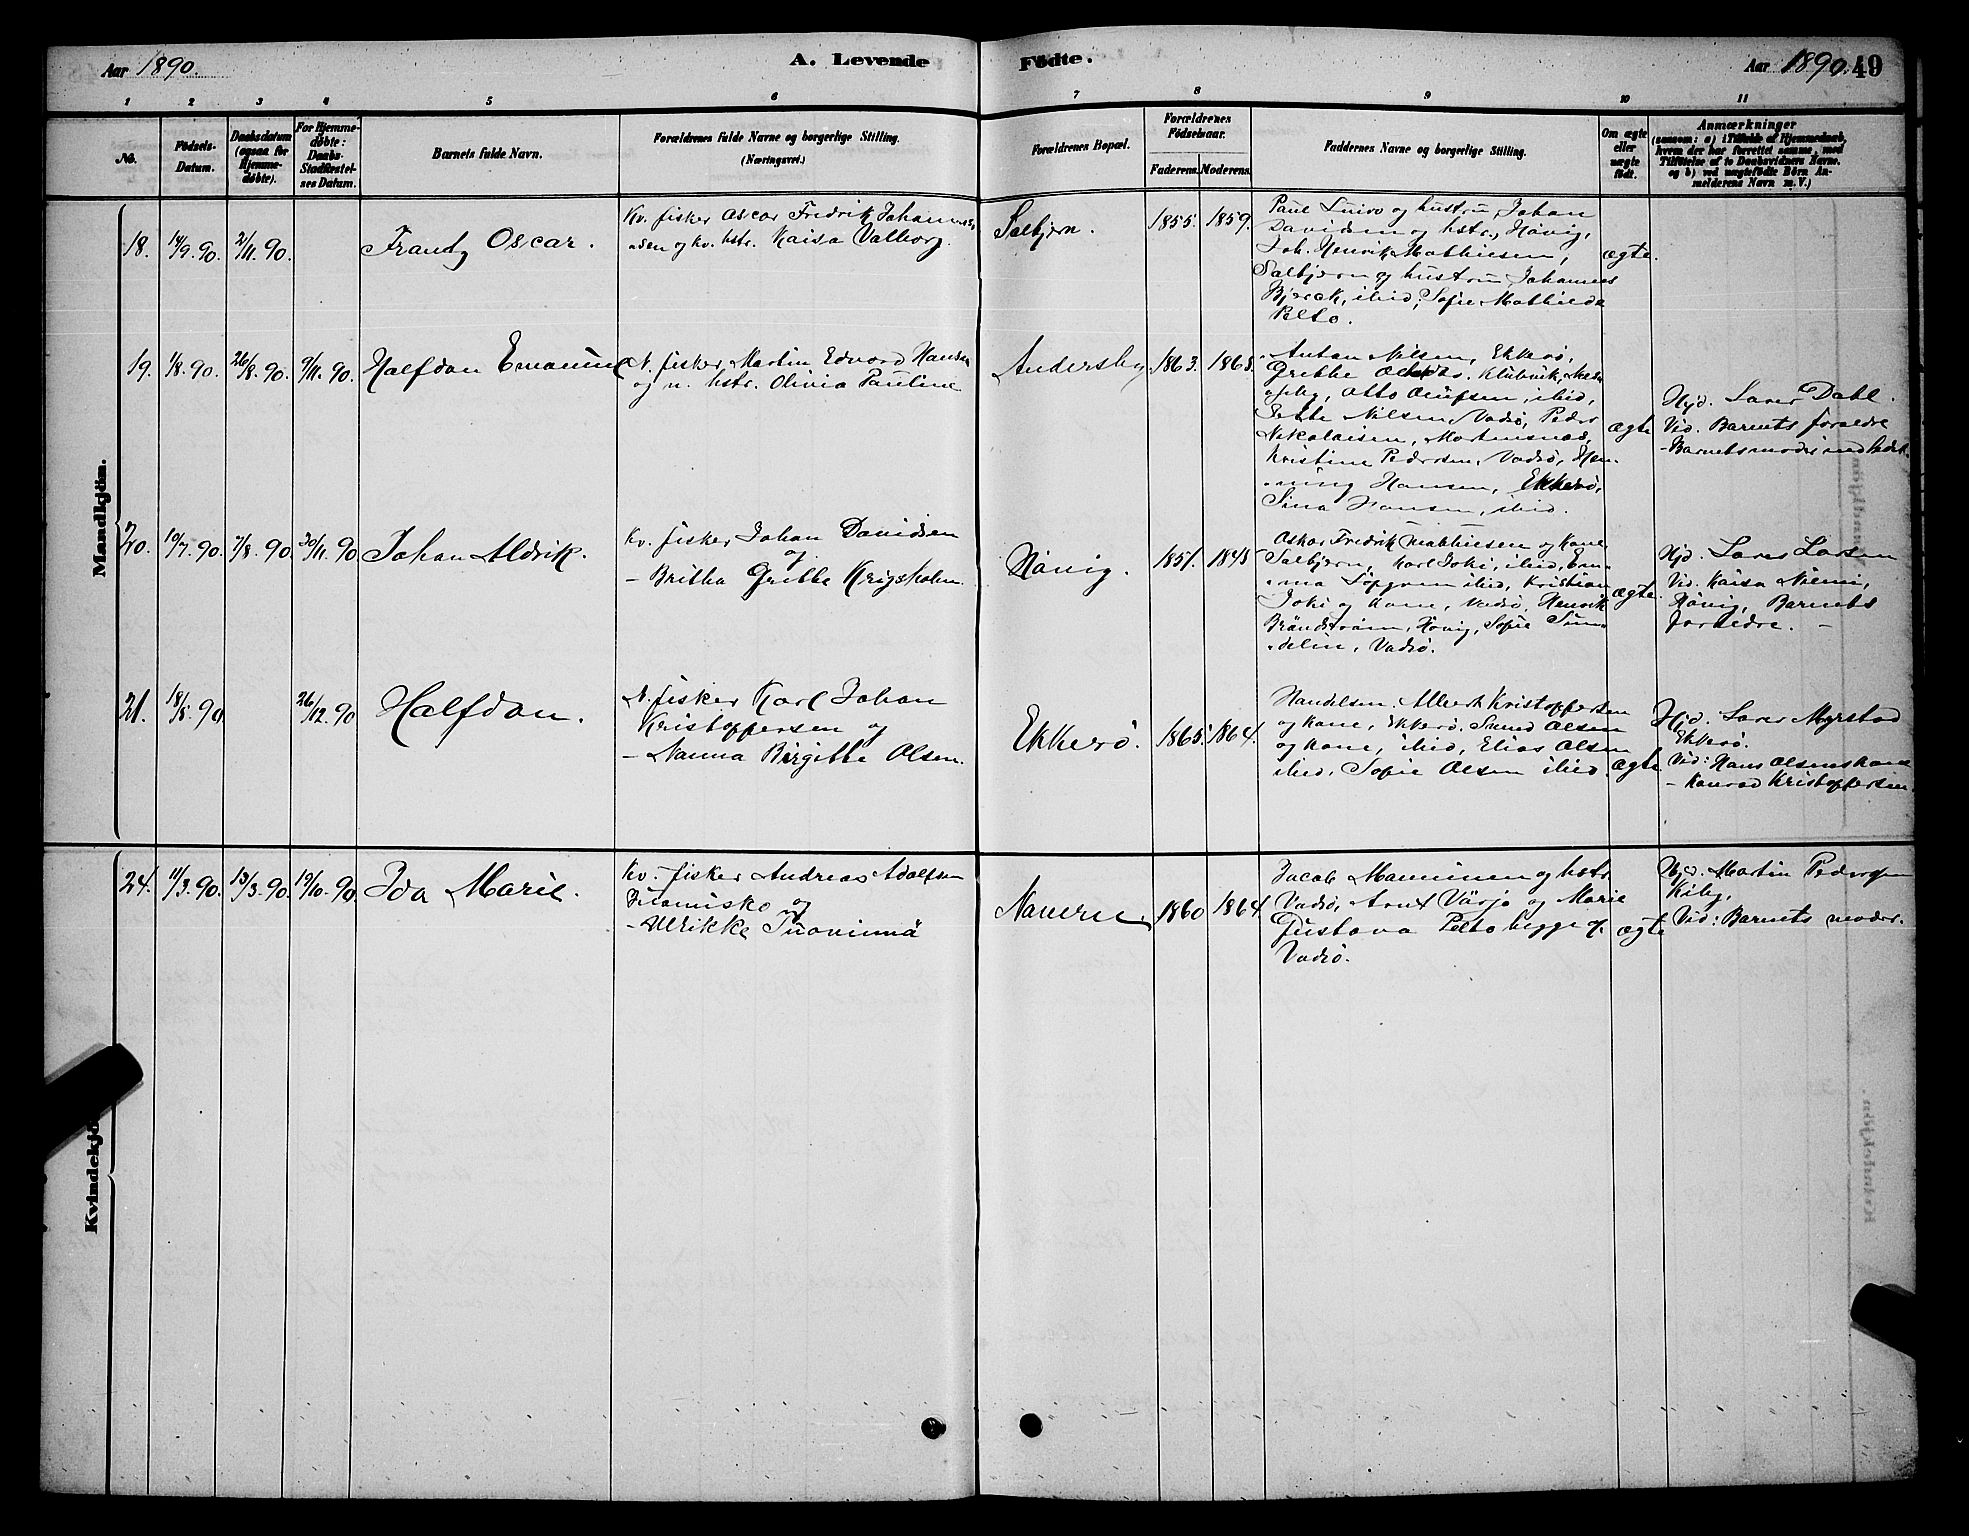 Aar 1890.
A. Levende
Fødte.
Aar 1890. 49
1 2 3 4 5 6 7 8 9 10 11
No.
Fødsels-
Datum.
Daabsdatum
(ogsaa for
Hjemme-
døbte).
For Hjemme-
døbte:
Daabs-
Stadfæstel-
ses Datum.
Barnets fulde Navn.
Forældrenes fulde Navne og borgerlige Stilling.
(Næringsvei.)
Forældrenes Bopæl.
Forældrenes
Fødselsaar.
Faderens. Moderens.
Faddernes Navne og borgerlige Stilling.
Om ægte
eller
uægte
født.
Anmærkninger
(saasom: a) i Tilfælde af Hjemmedaab,
hvem der har forrettet samme, med
Tilføielse af to Daabsvidners Navne.
og b) ved uægtefødte Børn An-
melderens Navn m. V.)
Mandkjøn.
18. 14/9. 90. 2/11. 90.
Frantz Oscar.
Kv. fisker Oscar Fredrik Johannes
og kv. hstr. Kaisa Valborg.
Salbjørn.
1855. 1859.
og hustru, Johan
Davidsen og hstr., Hånig,
Joh. Henrik Mathiesen,
Salbjørn og hustru Johannes
Bjerck, ibid, Sofie Mathilda
Pelto.
ægte.
19. 1/8. 90. 26/8. 90. 9/11. 90.
Halfdan Emanuel
N. fisker Martin Edvard Hansen
og n. hstr. Olivia Pauline
Andersby
1863. 1868.
Anton Nilsen, Ekkerø,
Grethe Klubvik,
Otto Olufsen, ibid,
Nilsen, Vadsø, Peder
Nikolaisen, Mortensnæs,
Kristine Pedersen, Vadsø, Hen-
ning Hansen, Ekkerø,
Sina Hansen, ibid.
ægte
Hjd. Lærer Dahl.
Vid. Barnets forældre
-Barnets moder
20. 10/7. 90. 7/8. 90 30/11. 90
Johan Aldrik.
Kv. fisker Johan Davidsen
og
- Britha Grethe Krigsholm.
Hånig.
1851. 1848
Oskar Fredrik Mathiesen og Kone
Salbjørn, Karl Joki, ibid, Em-
ma ibid, Kristian
Joki og Kone, Vadsø, Henrik
Brändstrøm, Hånig, Sofie Sun-
delin, Vadsø.
ægte.
Hjd. Lærer Larsen
Vid. Kaisa Niemi,
Hånig, Barnets
forældre. -
21. 18/8. 90 26/12. 90
Halfdan.
N. fisker Karl Johan
Kristoffersen og
- Nanna Birgitte Olsen.
Ekkerø.
1865. 1864.
Handelsm. Albert Kristoffersen
og Kone, Ekkerø. Olsen
og Kone, ibid, Elias Olsen
ibid, Sofie Olsen ibid
ægte.
Hjd. Lærer Myrstad
Ekkerø.
Vid: Hans Olsens Kone
- Konrad Kristoffersen.
Kvindekjøn
24. 11/3. 90. 13/3. 90. 19/10. 90.
Ida Marie.
Kv. fisker Andreas Adolfsen
og
- Ulrikke
1860 1864.
Jacob Manninen og hstr
Vadsø, og Marie
Gustava Pelto begge af
Vadsø.
ægte
Hjd. Martin Pedersen
Kiby,
Vid: Barnets moder.